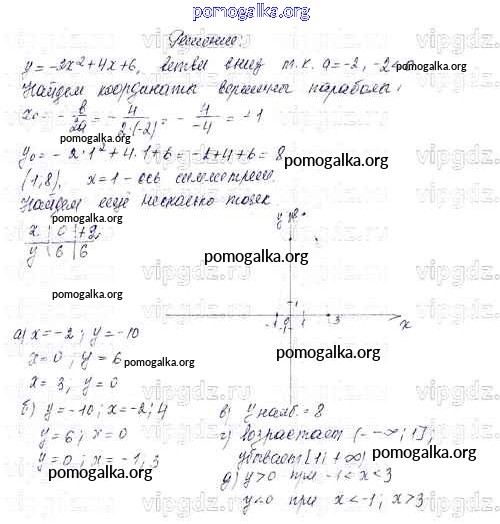 pomogalka.org
Решение:
y=-2x²+4x+6, ветви вниз т.к. a=-2, -2<0
Найдем координаты вершины параболы:
x₀ = - b/2a = - 4/2·(-2) = - 4/-4 = -1
pomogalka.org
y₀ = -2·1²+4·1+6 = -2+4+6 = 8
pomogalka.org
(1,8), x=1 - ось симметрии
Найдем ещё несколько точек
pomogalka.org
x | 0 | +2
y | 6 | 6
y 8
pomogalka.org
pomogalka.org
1
-1 0 1 3 x
а) x=-2; y=-10
x=0; y=6
pomogalka.org
pomogalka.org
x=3, y=0
б) y=-10; x=-2; 4
в) y наиб. = 8
y=6; x=0
г) возрастает (-∞; 1];
y=0; x=-1; 3
убывает [1; +∞)
pomogalka.org
д) y>0 при -1<x<3
pomogalka.org
y<0 при x<-1; x>3
vipgdz.ru